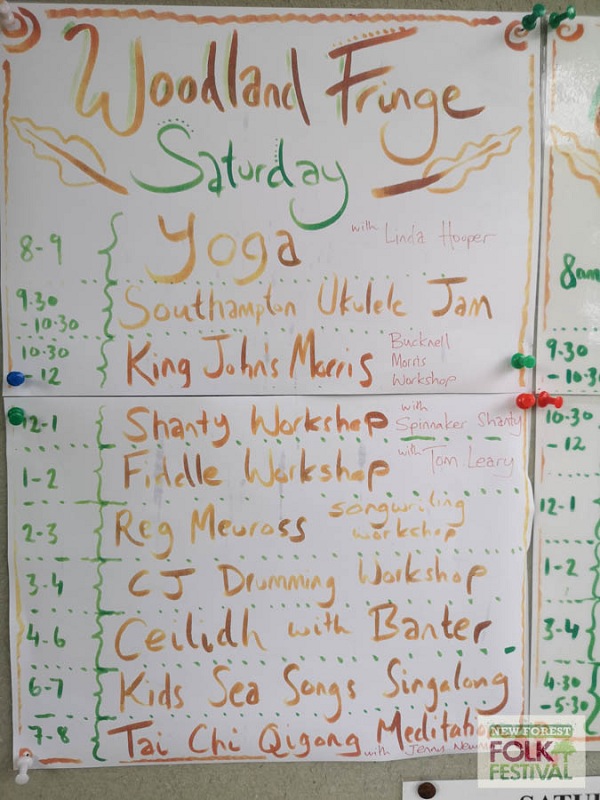 Woodland Fringe
Saturday
8-9 Yoga with Linda Hooper
9.30 -10.30 Southampton Ukulele Jam
10.30 -12 King John's Morris Bucknell Morris Workshop
12-1 Shanty Workshop with Spinnaker Shanty
1-2 Fiddle Workshop with Tom Leary
2-3 Reg Meuross songwriting workshop
3-4 CJ Drumming Workshop
4-6 Ceilidh with Banter
6-7 Kids Sea Songs Singalong
7-8 Tai Chi Qigong Meditation with Jenny
8am
9.30
-10.3
10.30
-12
12-1
1-2
3-4
4.30
-5.30
NEW FOREST
FOLK
FESTIVAL